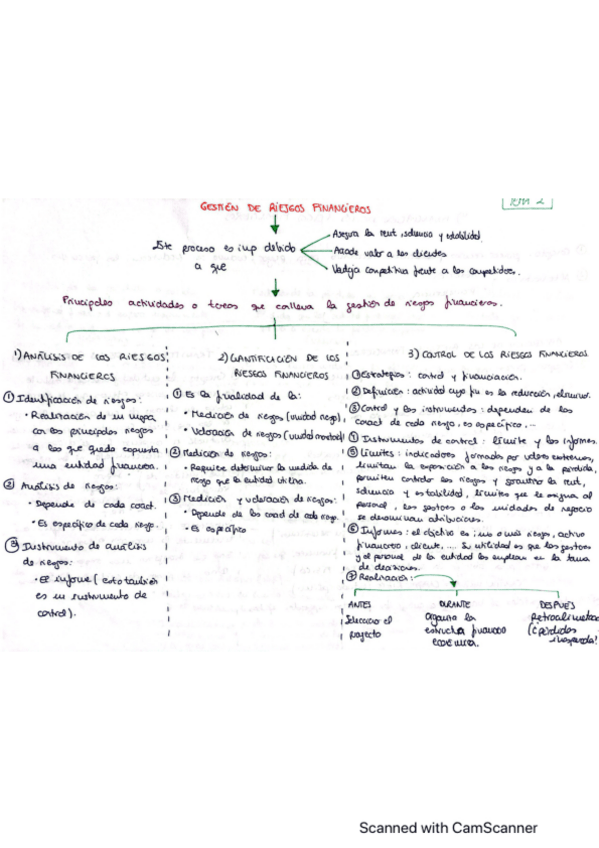 GESTIÓN DE RIESGOS FINANCIEROS
TEM 2
Este proceso es imp debido
a que
Asegura la rent, solvencia y estabilidad.
Añade valor a los clientes
Ventaja competitiva frente a los competidores.
Principales actividades o tareas que conlleva la gestión de riesgos financieros.
1) ANÁLISIS DE LOS RIESGOS
FINANCIEROS
① Identificación de riesgos:
• Realización de un mapa
con los principales riesgos
a los que queda expuesta
una entidad financiera.
② Análisis de riesgos:
• Depende de cada caract.
• Es específico de cada riesgo.
③ Instrumento de análisis
de riesgo:
• El informe (esto también
es un instrumento de
control).
2) CUANTIFICACIÓN DE LOS
RIESGOS FINANCIEROS
① Es la finalidad de la:
• Medición de riesgos (unidad riesgo)
• Valoración de riesgos (unidad monetaria)
② Medición de riesgos:
• Requiere determinar la medida de
riesgo que la entidad utiliza.
③ Medición y valoración de riesgos:
• Depende de las caract de cada riesgo
• Es específico
3) CONTROL DE LOS RIESGOS FINANCIEROS
① Estrategias: control y financiación.
② Definición: actividad cuyo fin es la reducción,
③ Control y los instrumentos: dependen de las
caract de cada riesgo, es específico...
Instrumentos de control: límite y los informes.
⑤ Límites: indicadores formados por valores extremos,
limitan la exposición a los riesgos y a la pérdida,
permiten controlar los riesgos y garantiza la rent,
solvencia y estabilidad, límites que se asigna al
personal, los gestores o las unidades de negocio
se denominan atribuciones.
⑥ Informes: el objetivo es: uno o más riesgos, activo
financiero, cliente, ... Su utilidad es que los gestores
y el personal de la entidad los emplean en la toma
de decisiones.
⑦ Realización:
ANTES
Selecciona el
proyecto
DURANTE
Organiza la
estructura financiero
económica.
DESPUÉS
Retroalimenta
(¿pérdidas
inesperada!
Scanned with CamScanner